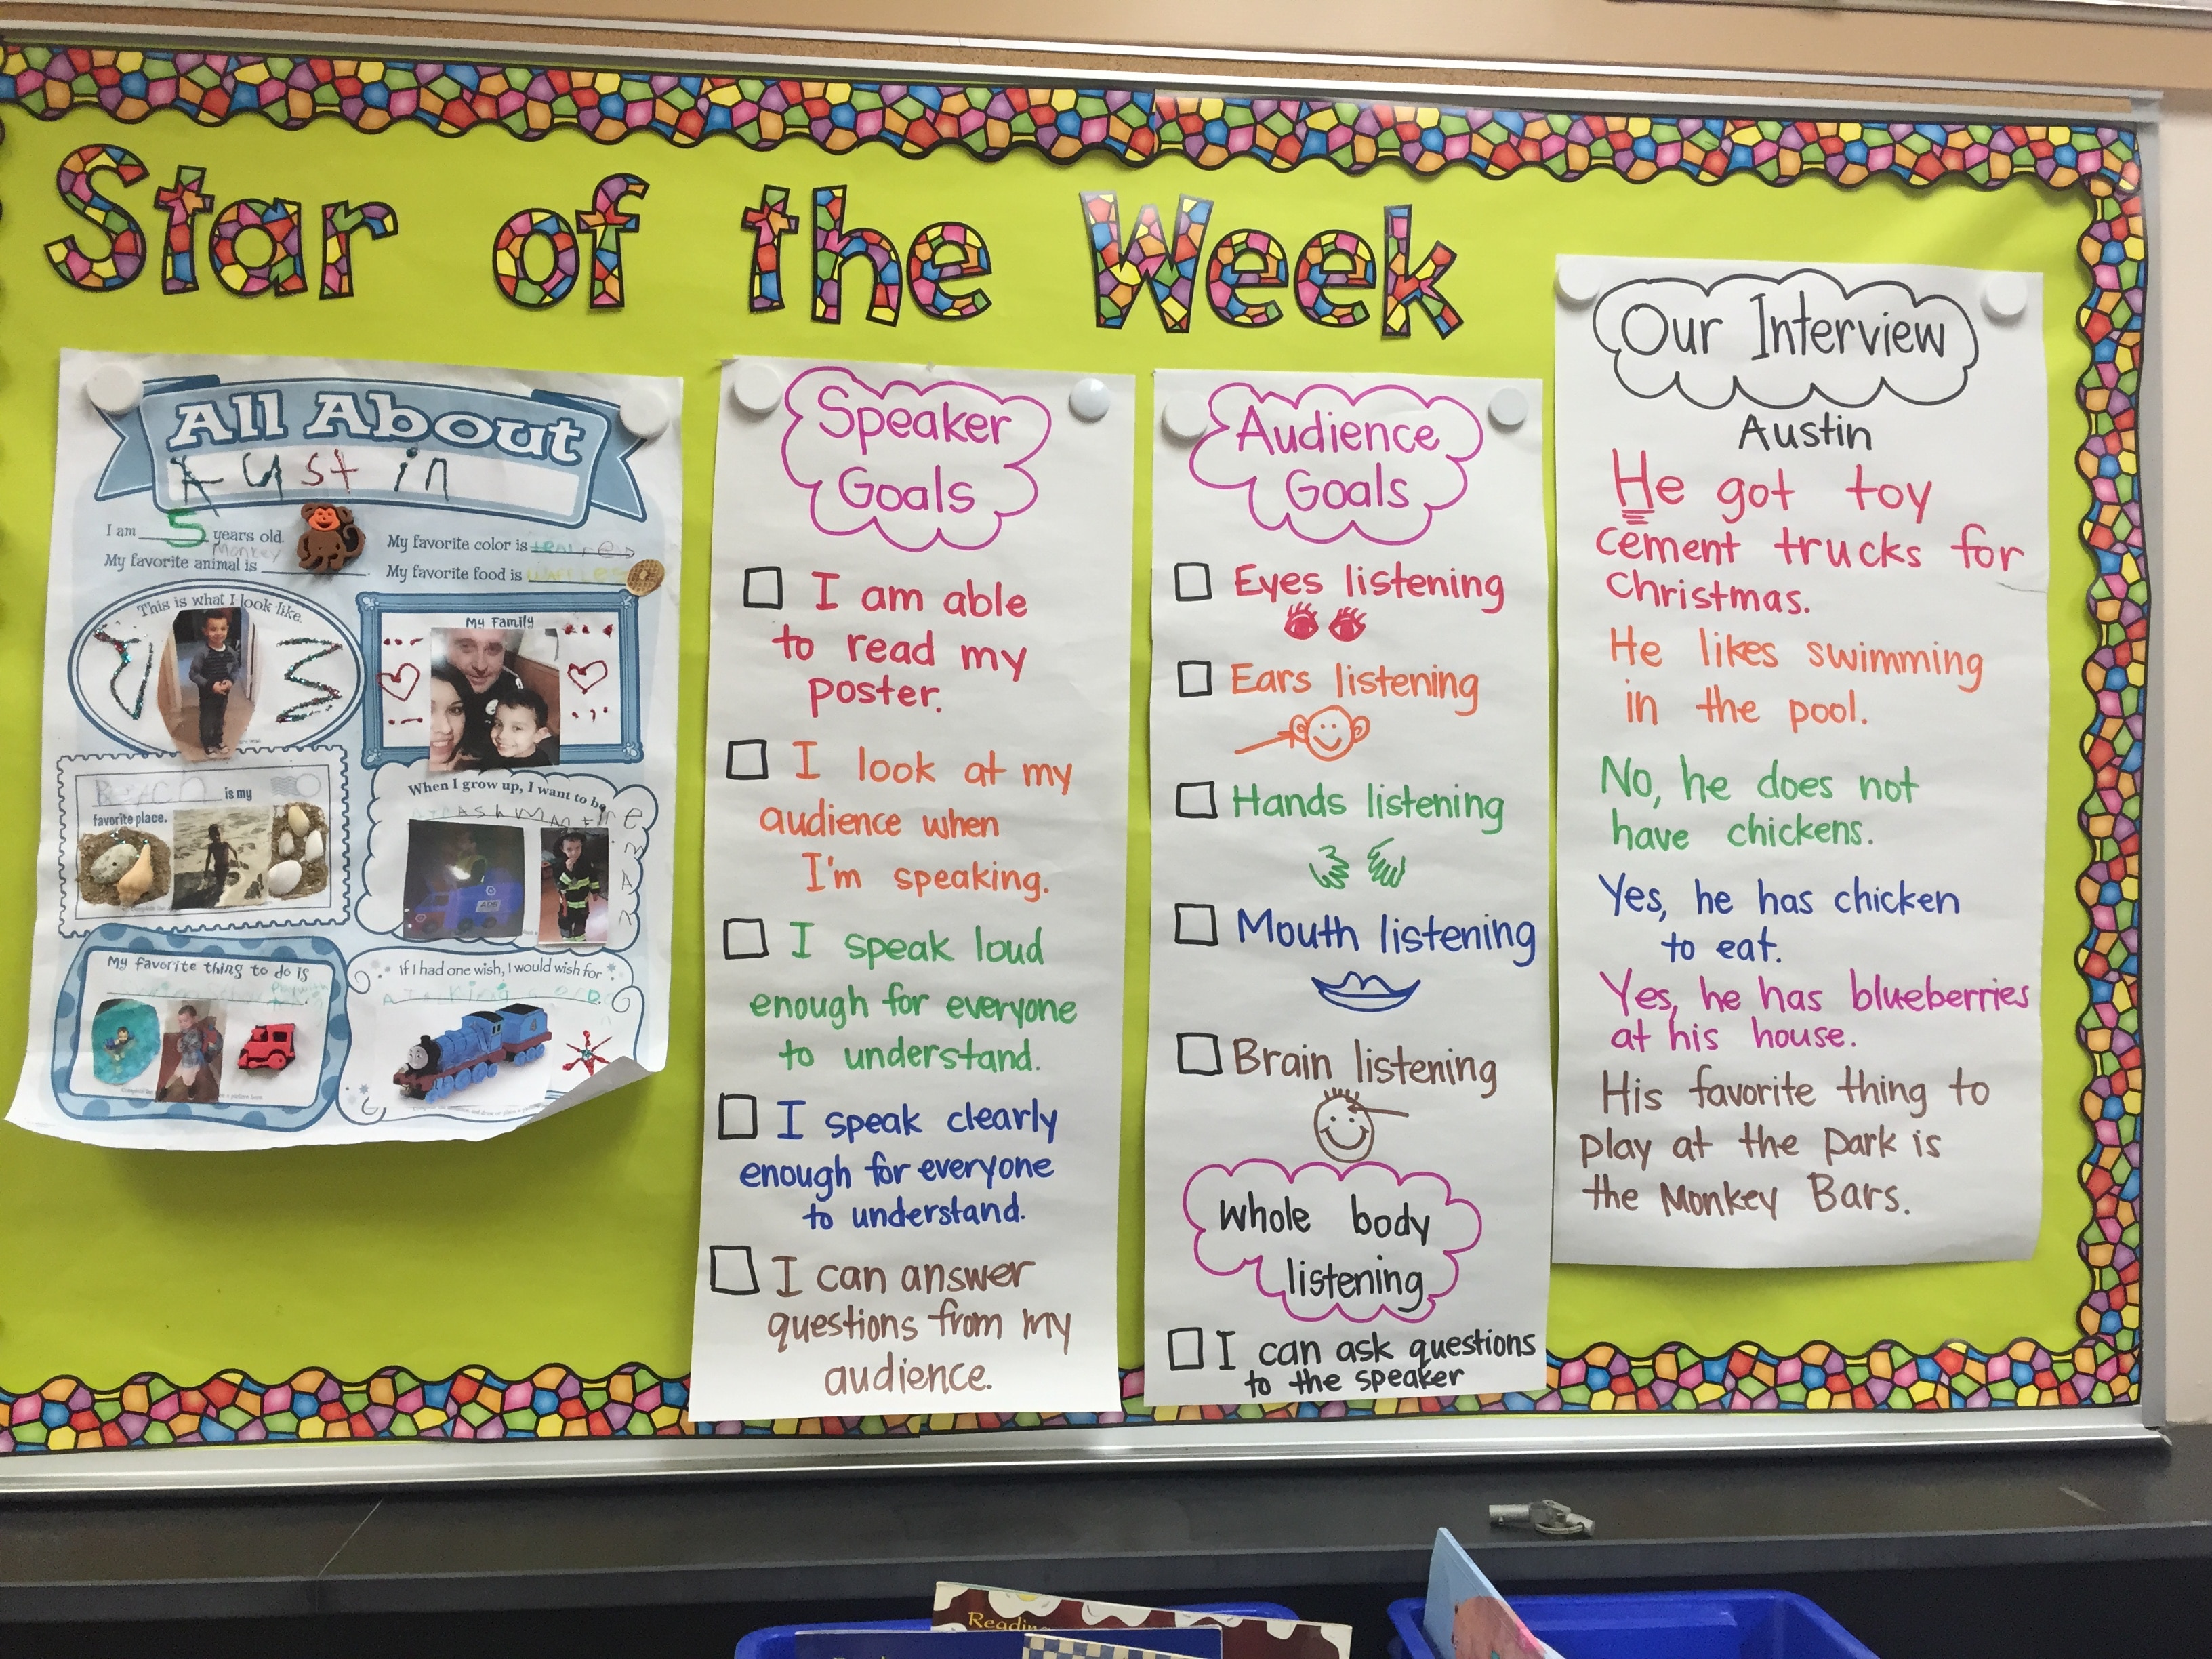 Star of the Week
All About
Austin
I am 5 years old.
My favorite animal is Monkey.
My favorite color is
My favorite food is waffles
This is what I look like.
My Family
Beach is my
favorite place.
When I grow up, I want to be
My favorite thing to do is
If I had one wish, I would wish for
Speaker
Goals
I am able
to read my
poster.
I look at my
audience when
I'm speaking.
I speak loud
enough for everyone
to understand.
I speak clearly
enough for everyone
to understand.
I can answer
questions from my
audience.
Audience
Goals
Eyes listening
Ears listening
Hands listening
Mouth listening
Brain listening
whole body
listening
I can ask questions
to the speaker
Our Interview
Austin
He got toy
cement trucks for
Christmas.
He likes swimming
in the pool.
No, he does not
have chickens.
Yes, he has chicken
to eat.
Yes, he has blueberries
at his house.
His favorite thing to
play at the park is
the Monkey Bars.